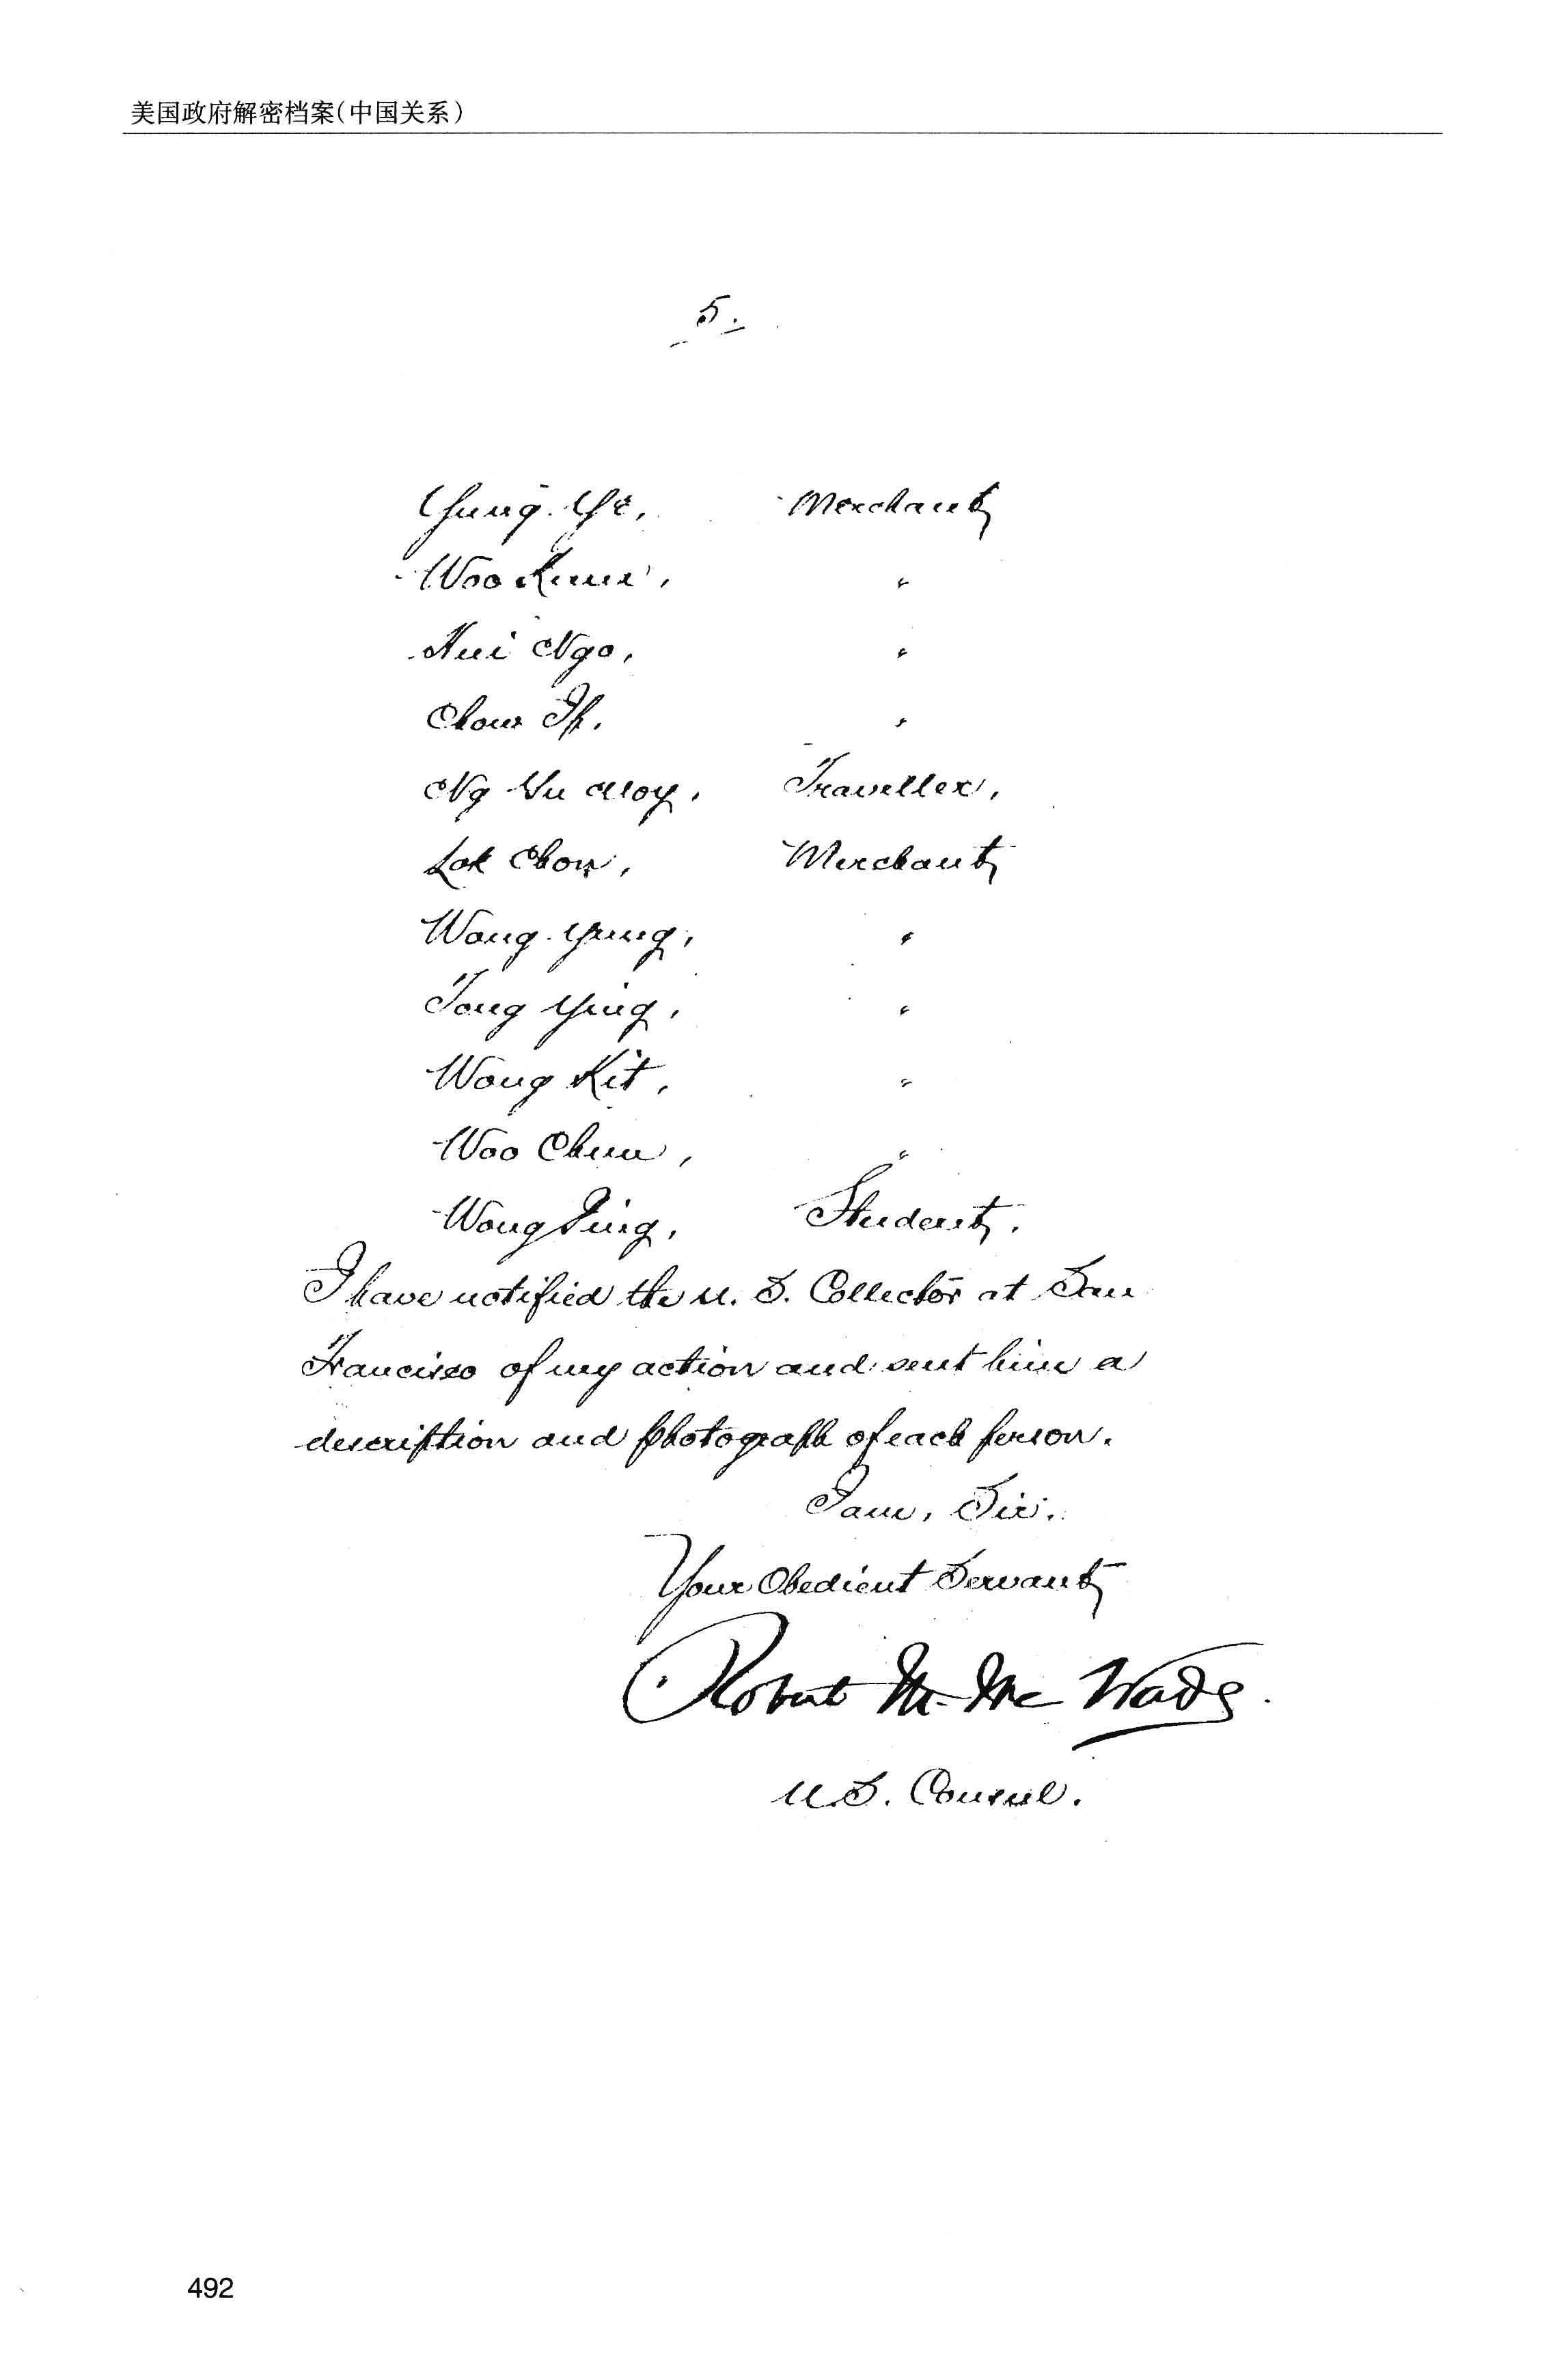 美国政府解密档案(中国关系)
5.
Yung Ye, Merchant
Woo Kum, "
Hui Ngo, "
Chow If. "
Ng Yu Moy, Traveller,
Lok Chow, Merchant
Wong Yung, "
Tong Ying, "
Wong Kit, "
Woo Chun, "
Wong Ping, Student.
I have notified the U. S. Collector at San
Francisco of my action and sent him a
description and photograph of each person.
I am, Sir.
Your Obedient Servant
Robert M. McWade.
U.S. Consul.
492